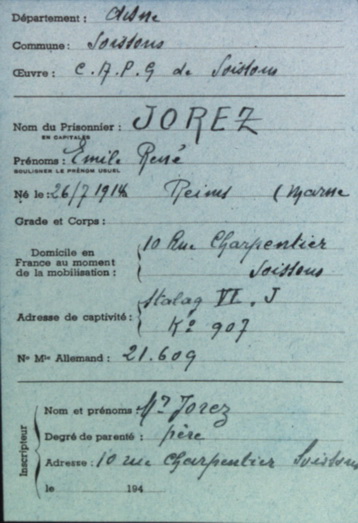 Département : Aisne
Commune : Soissons
Œuvre : C.A.P.G de Soissons
Nom du Prisonnier : JOREZ
EN CAPITALES
Prénoms : Emile René
SOULIGNER LE PRÉNOM USUEL
Né le : 26/7 1918 Reims (Marne
Grade et Corps :
Domicile en France au moment de la mobilisation : 10 Rue Charpentier
Soissons
Adresse de captivité : Stalag VI. J
Ko 907
No Mle Allemand : 21.609
Inscripteur
Nom et prénoms : Mr Jorez
Degré de parenté : père
Adresse : 10 rue Charpentier Soissons
le 194